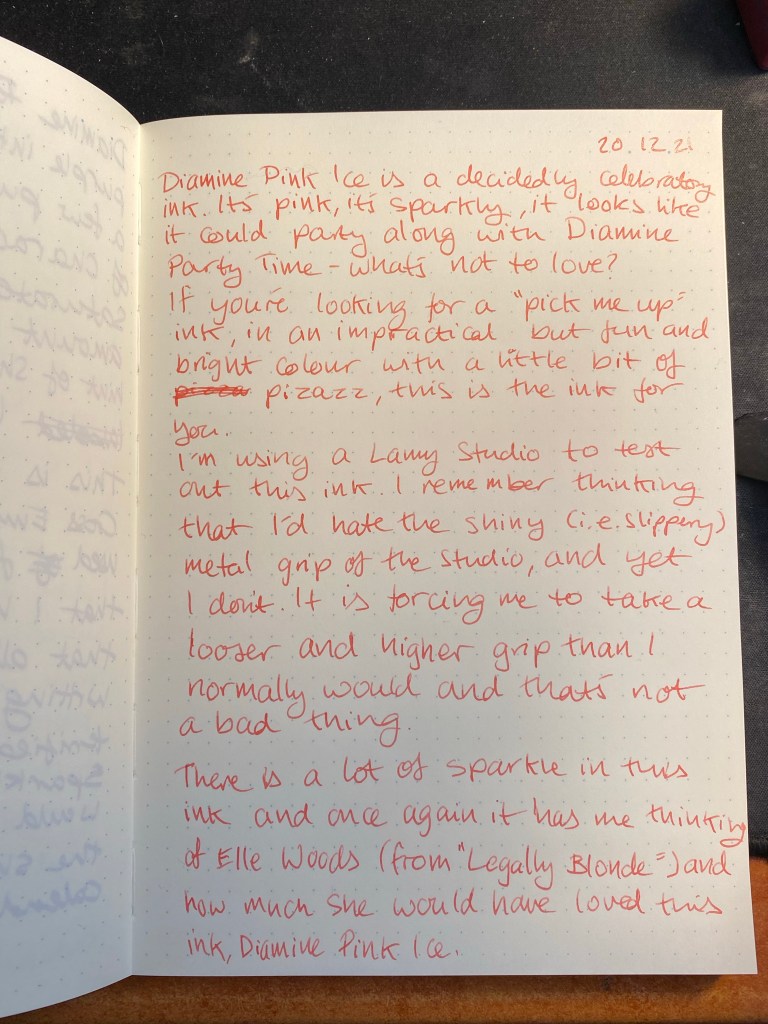 20.12.21
Diamine Pink Ice is a decidedly celebratory
ink. It's pink, it's sparkly, it looks like
it could party along with Diamine
Party Time - what's not to love?
If you're looking for a "pick me up"
ink, in an impractical but fun and
bright colour with a little bit of
pizazz, this is the ink for
you.
I'm using a Lamy Studio to test
out this ink. I remember thinking
that I'd hate the shiny (i.e. slippery)
metal grip of the Studio, and yet
I don't. It is forcing me to take a
looser and higher grip than I
normally would and that's not
a bad thing.
There is a lot of sparkle in this
ink and once again it has me thinking
of Elle Woods (from "Legally Blonde") and
how much she would have loved this
ink, Diamine Pink Ice.